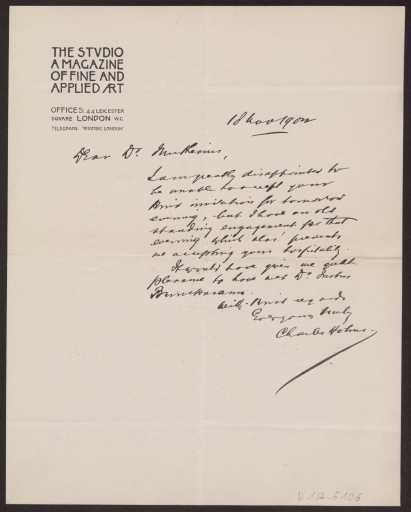 THE STVDIO
A MAGAZINE
OF FINE AND
APPLIED ART
OFFICES: 44 LEICESTER
SQUARE LONDON W.C.
18 Nov 1902
Dear Dr. Muthesius,
I am greatly disappointed to
be unable to accept your
kind invitation for tomorrow
evening, but I have an old
standing engagement for that
evening which alas! prevents
me accepting your hospitality.
It would have given me great
pleasure to have met Dr. Justus
Brinckmann.
With kind regards
Ever yours truly
Charles Holme.